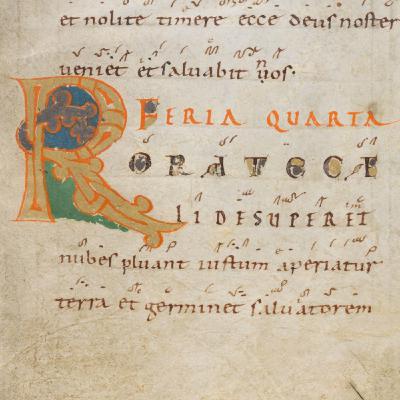 et nolite timere ecce deus noster
veniet et salvabit nos.
FERIA QUARTA
RORATE CAE
LI DESUPER ET
nubes pluant iustum aperiatur
terra et germinet salvatorem